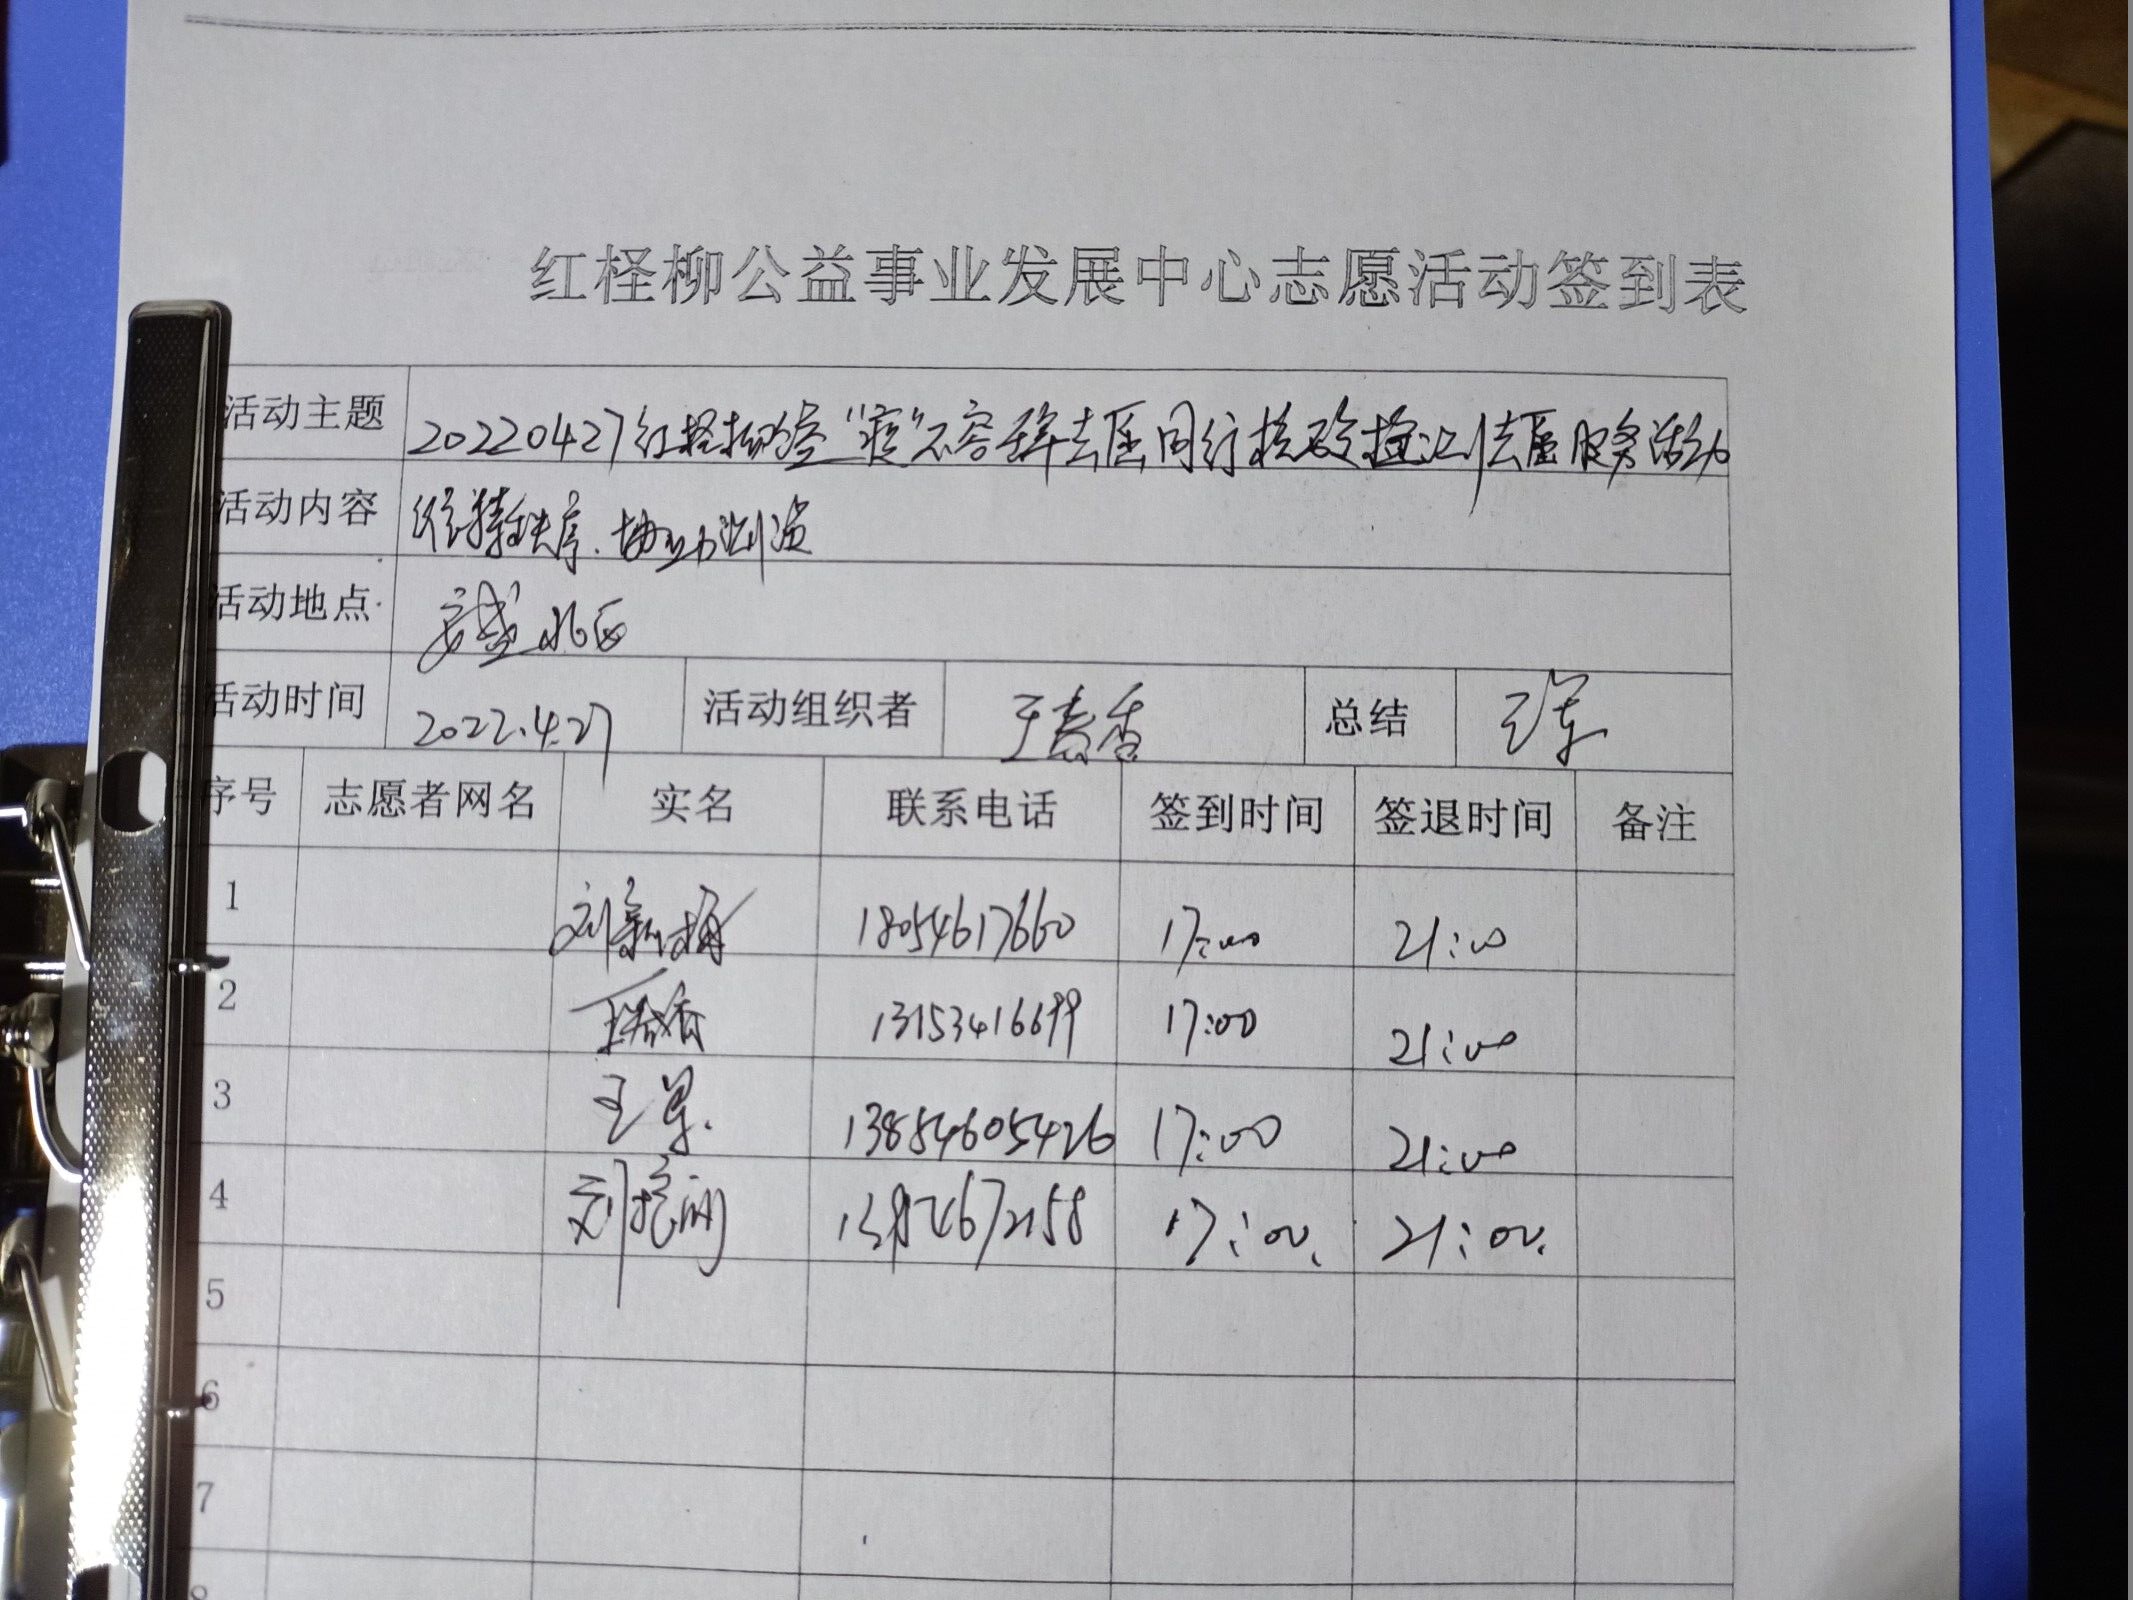 红柽柳公益事业发展中心志愿活动签到表
活动主题 20220427红柽柳 "疫"不容辞志愿同行核酸检测志愿服务活动
活动内容 维持秩序、协助测温
活动地点 安盛北区
活动时间 2022.4.27 活动组织者 王春香 总结 王军
序号 志愿者网名 实名 联系电话 签到时间 签退时间 备注
1 刘新梅 18054617660 17:00 21:00
2 王春香 13153416699 17:00 21:00
3 王军 13854605426 17:00 21:00
4 刘 17:00 21:00
5
6
7
8